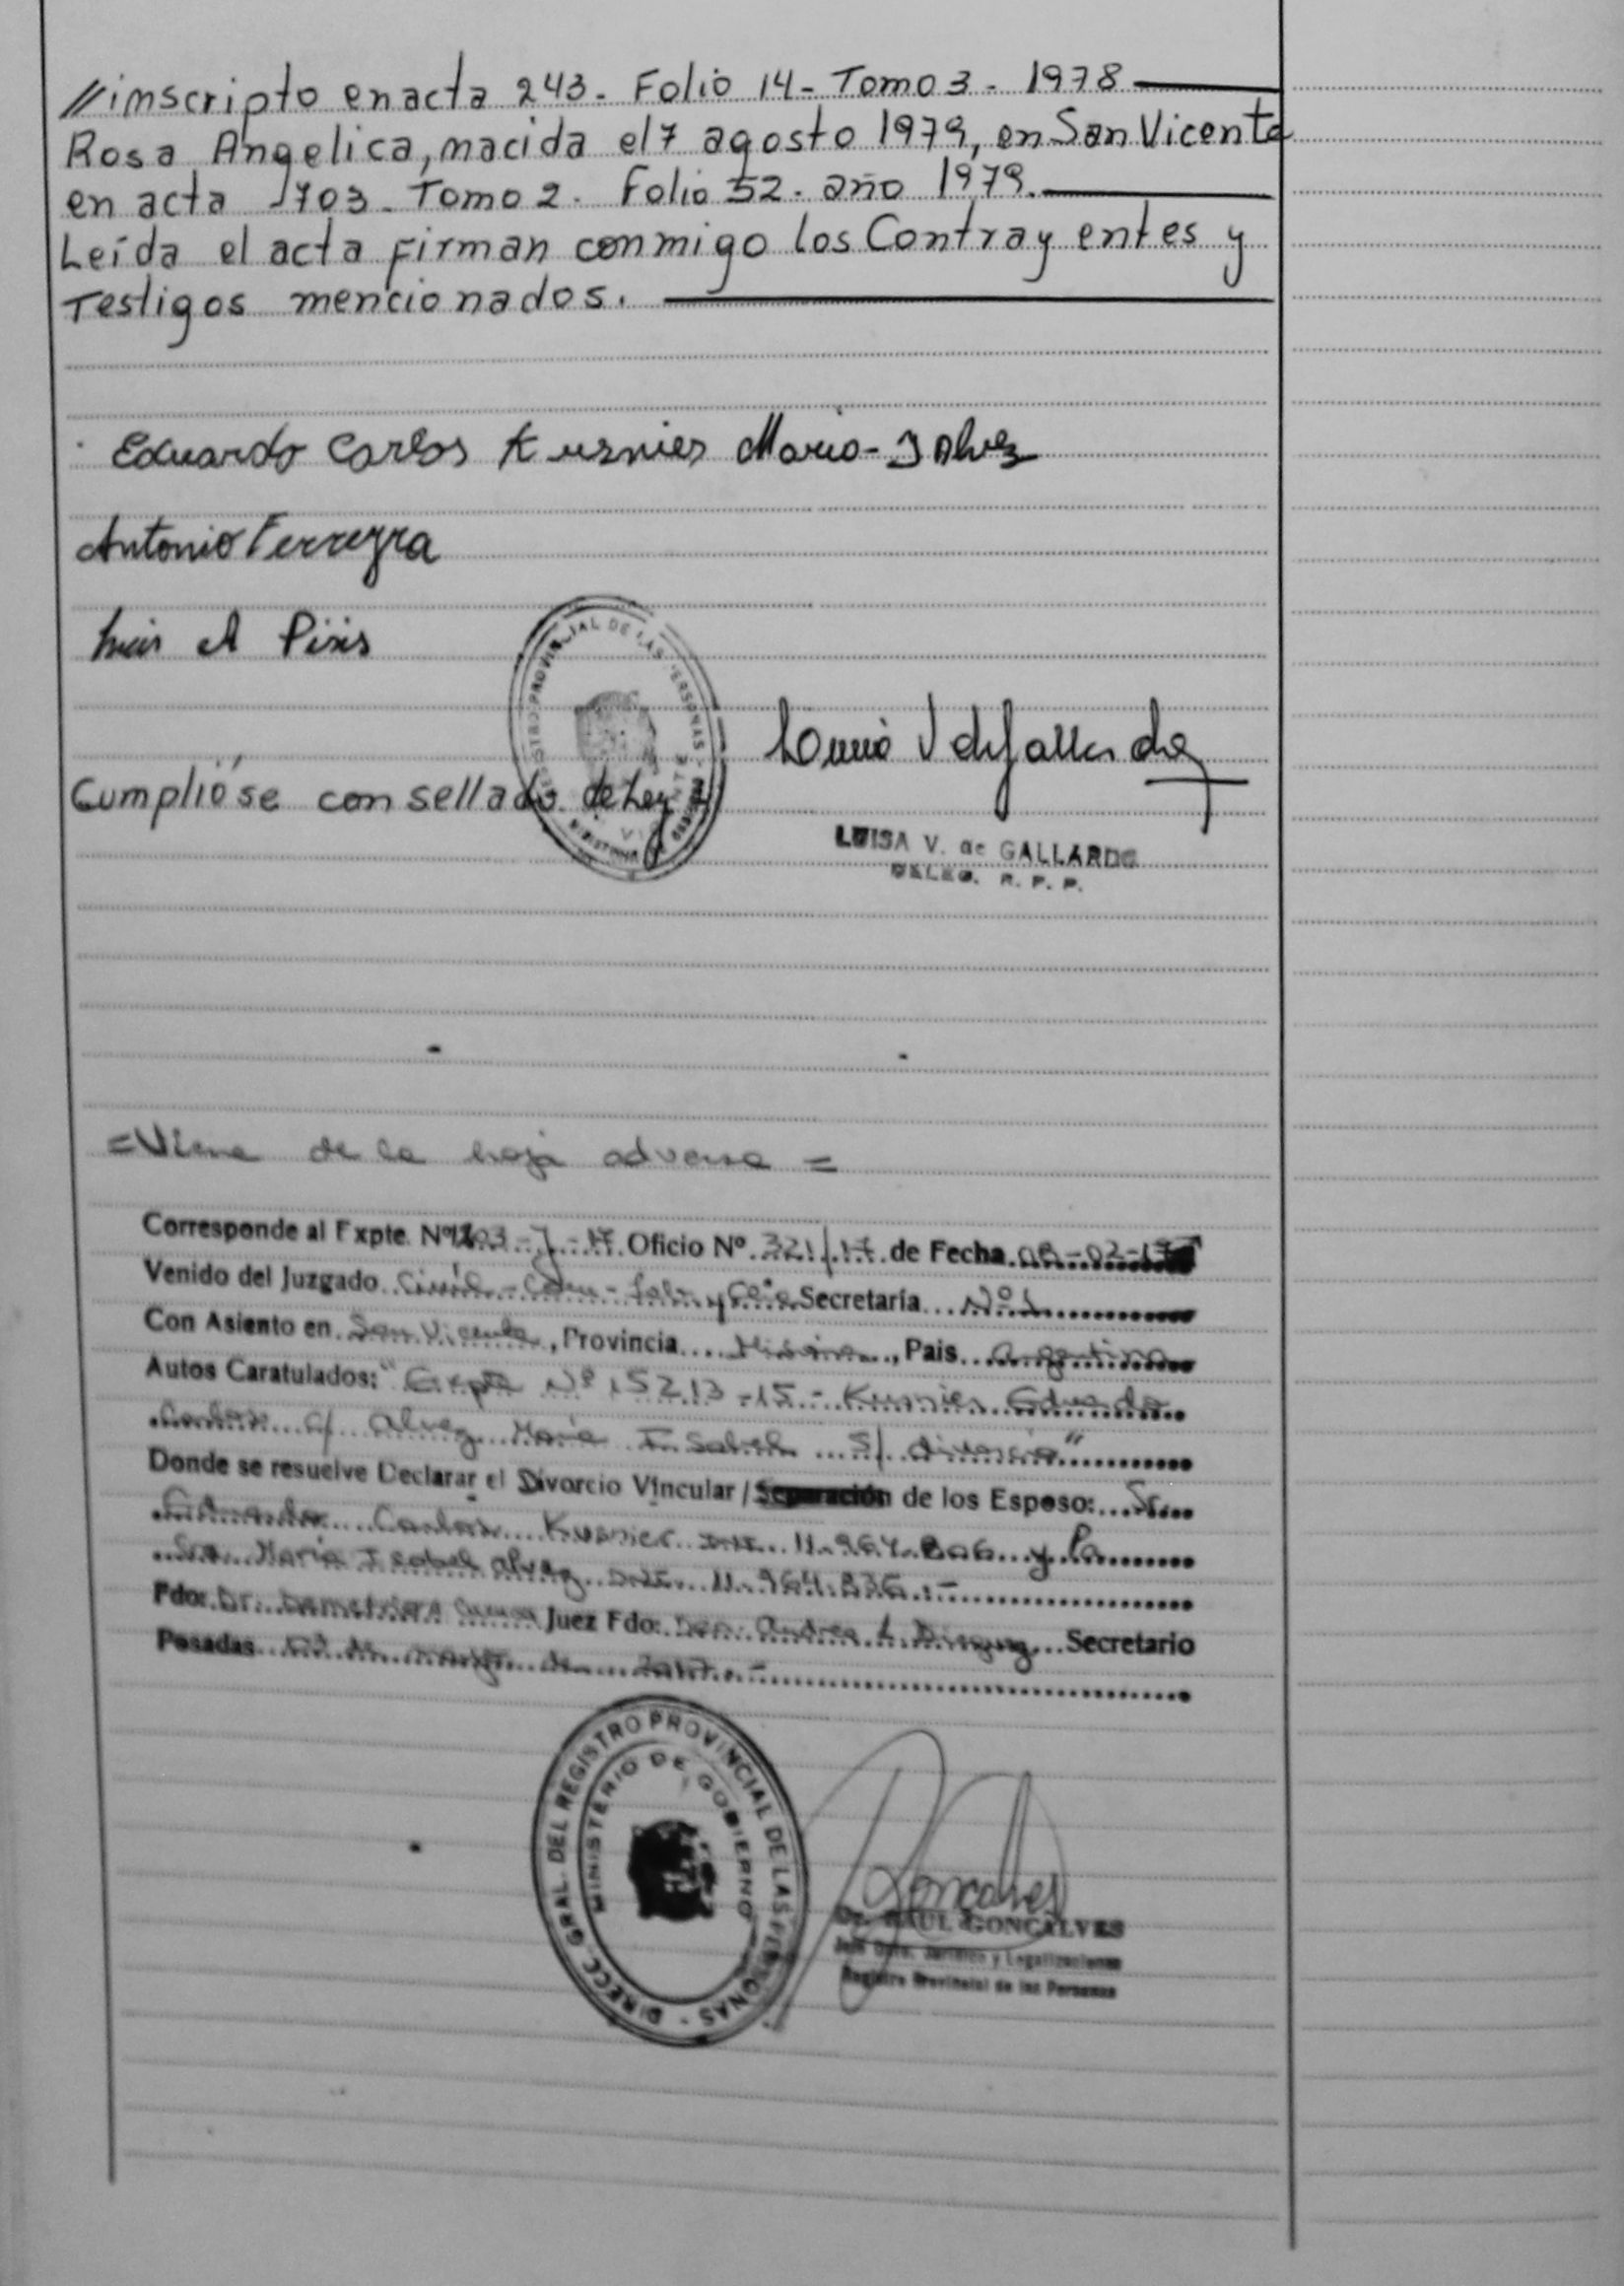 //inscripto en acta 243. Folio 14- Tomo 3- 1978
Rosa Angelica, nacida el 7 agosto 1979, en San Vicente
en acta 1703- Tomo 2. Folio 52- año 1979.
Leída el acta firman conmigo los Contrayentes y
Testigos mencionados.
Eduardo Carlos Kusnier Maria-I Alvez
Antonio Ferreyra
Luis A
PROVINCIAL DE LAS PERSONAS
Cumplióse con sellado de Ley
LUISA V. de GALLARDO
DELEG. R. P. P.
=Viene de la hoja adversa =
Corresponde al Expte. Nº Oficio Nº 321/17 de Fecha
Venido del Juzgado Civil-Com-Lab- y Secretaría Nº 1
Con Asiento en San Vicente, Provincia Misiones, Pais Argentina
Autos Caratulados: "Expte Nº 15213-15- Kusnier Eduardo
Carlos c/ Alvez María Isabel S/ divorcio"
Donde se resuelve Declarar el Divorcio Vincular / Separación de los Esposo: Sr.
Eduardo Carlos Kusnier DNI 11.964.806 y la
Sra. María Isabel Alvez DNI 11.964.836.-
Fdo: Dr. Juez Fdo: Dra. Andrea Secretario
Posadas de de 2017.-
DIRECC. GRAL. DEL REGISTRO PROVINCIAL DE LAS PERSONAS -
MINISTERIO DE GOBIERNO
Goncalves
Dr. RAUL GONCALVES
Jefe Dpto. Jurídico y Legalizaciones
Registro Provincial de las Personas